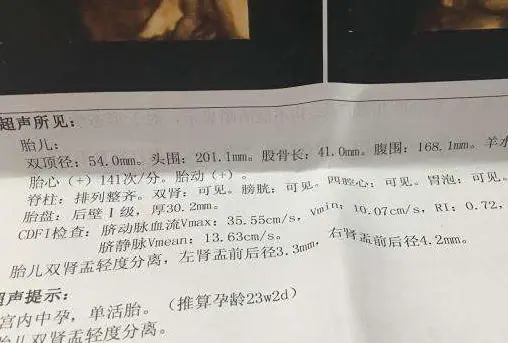 超声所见：
胎儿：
双顶径：54.0mm。头围：201.1mm。股骨长：41.0mm。腹围：168.1mm。羊水
胎心（+）141次/分。胎动（+）。
脊柱：排列整齐。双肾：可见。膀胱：可见。四腔心：可见。胃泡：可见。
胎盘：后壁 I 级，厚30.2mm。
CDFI检查：脐动脉血流Vmax：35.55cm/s，Vmin：10.07cm/s，RI：0.72，
脐静脉Vmean：13.63cm/s。
胎儿双肾盂轻度分离，左肾盂前后径3.3mm，右肾盂前后径4.2mm。
超声提示：
宫内中孕，单活胎。（推算孕龄23w2d）
胎儿双肾盂轻度分离。